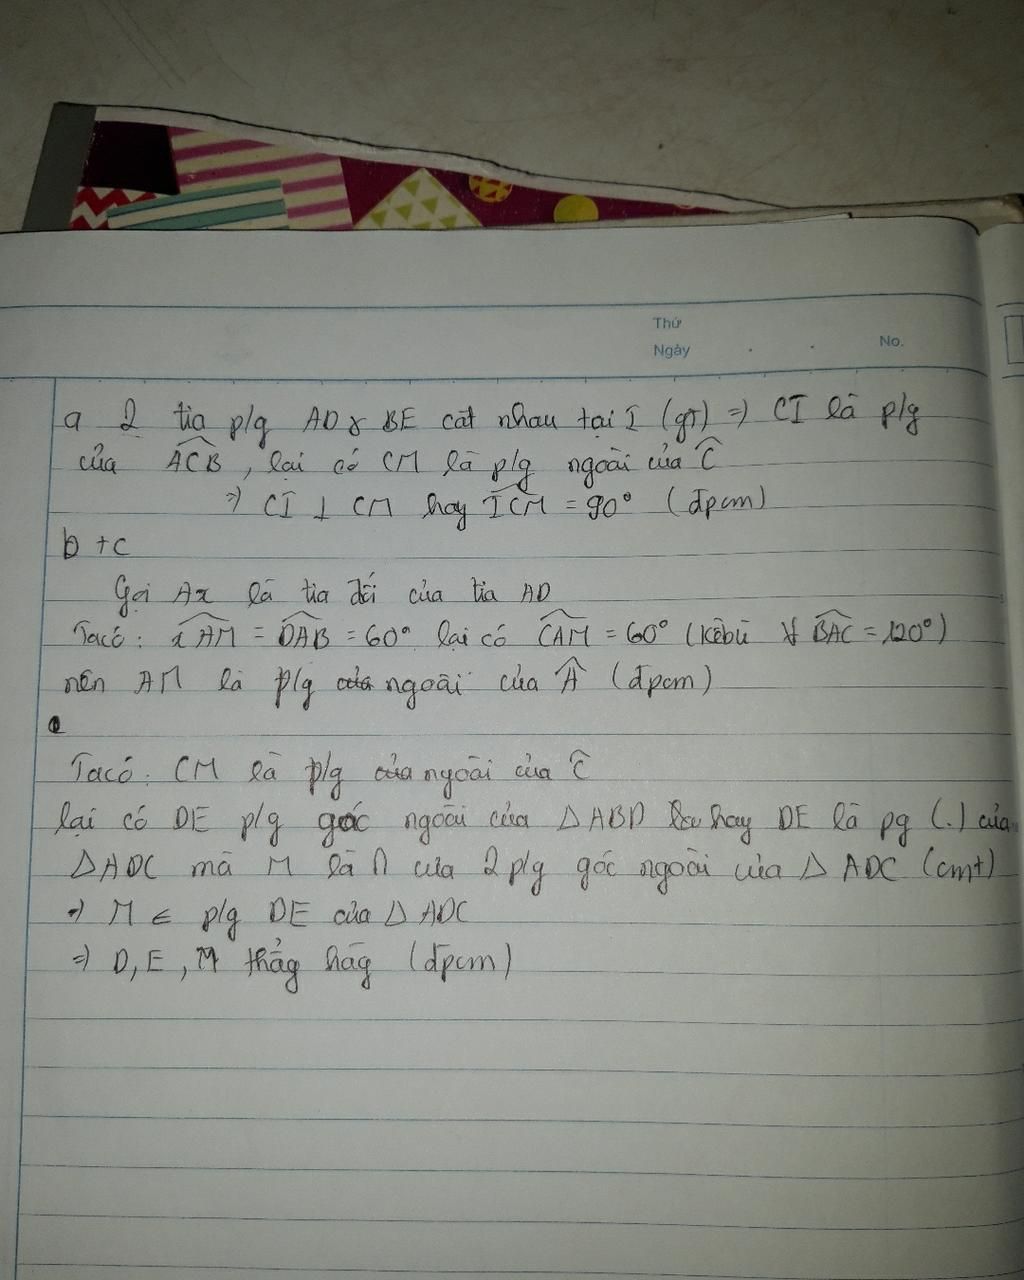 Thứ
Ngày . . No.
a 2 tia p/g AD & BE cắt nhau tại I (gt) => CI là p/g
của ACB, lại có CM là p/g ngoài của Ĉ
=> CI ⊥ CM hay ICM = 90° (đpcm)
b + c
Gọi Ax là tia đối của tia AD
Tacó: xAM = DAB = 60° lại có CAM = 60° (kềbù BAC = 120°)
nên AM là p/g ngoài của Â (đpcm)
Tacó: CM là p/g ngoài của Ĉ
lại có DE p/g góc ngoài của △ABD hay DE là pg (.) của
△ADC mà M là ∩ của 2 p/g góc ngoài của △ ADC (cmt)
=> M ∈ p/g DE của △ ADC
=> D, E, M thẳg hàg (đpcm)